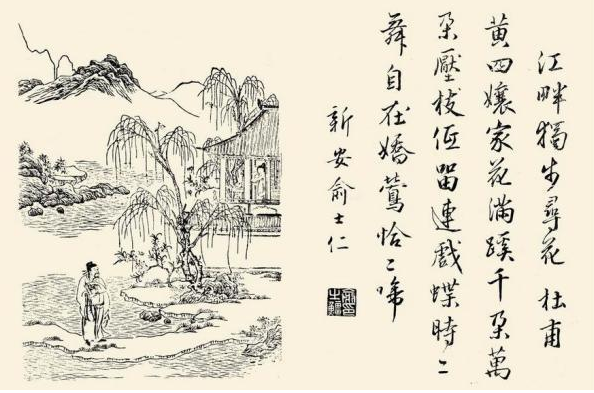 江畔獨步尋花 杜甫
黄四孃家花滿蹊千朶萬
朶壓枝低畱連戲蝶時〻
舞自在嬌鶯恰〻啼
新安俞士仁